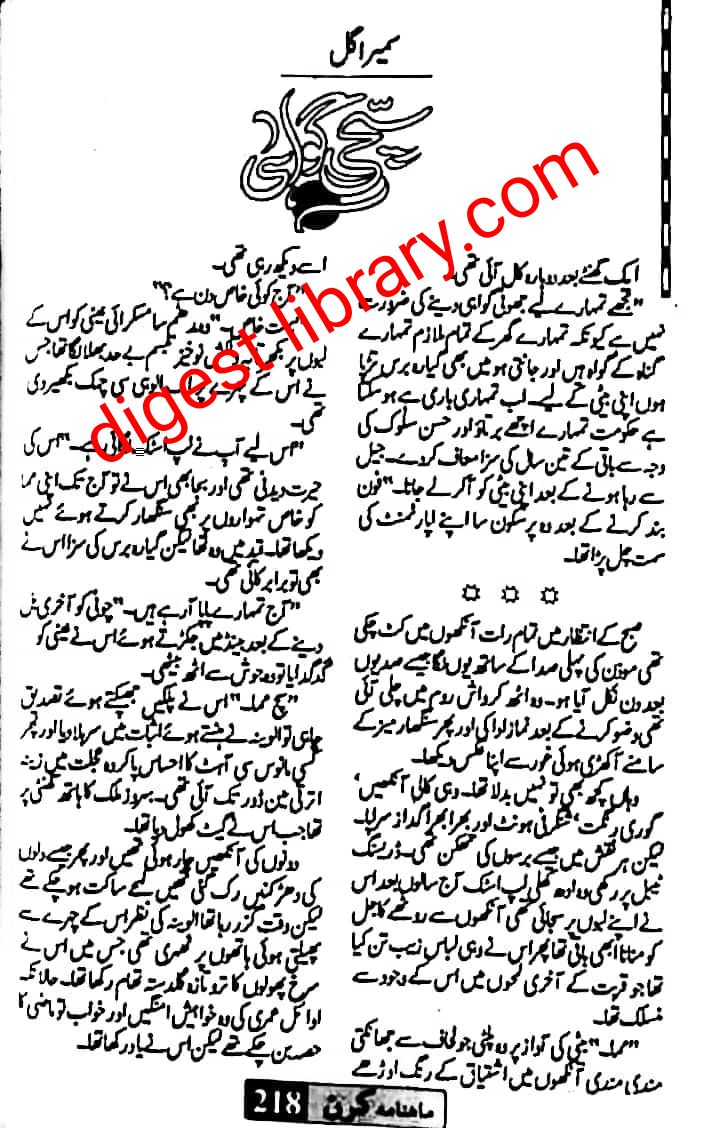 سمیرا گل
سچی گواہی
digest library.com
ایک گھنٹے بعد دوبارہ کال آئی تھی۔
"مجھے تمہارے لیے جھوٹی گواہی دینے کی ضرورت
نہیں ہے کیونکہ تمہارے گھر کے تمام ملازم تمہارے
گناہ کے گواہ ہیں اور جانتی ہو میں بھی گیارہ برس تڑپا
ہوں اپنی بیٹی کے لیے۔ اب تمہاری باری ہے ہو سکتا
ہے حکومت تمہارے اچھے برتاؤ اور حسن سلوک کی
وجہ سے باقی کے تین سال کی سزا معاف کردے۔ جیل
سے رہا ہونے کے بعد اپنی بیٹی کو آکر لے جانا۔" فون
بند کرنے کے بعد وہ پرسکون سا اپنے اپارٹمنٹ کی
سمت چل پڑا تھا۔
☼ ☼ ☼
صبح کے انتظار میں تمام رات آنکھوں میں کٹ چکی
تھی موذن کی پہلی صدا کے ساتھ یوں لگا جیسے صدیوں
بعد دن نکل آیا ہو۔ وہ اٹھ کر واش روم میں چلی آئی
تھی وضو کرنے کے بعد نماز ادا کی اور پھر سنگھار میز کے
سامنے آکھڑی ہوئی غور سے اپنا عکس دیکھا۔
وہاں کچھ بھی تو نہیں بدلا تھا۔ وہی کالی آنکھیں'
گوری رنگت' شنگرفی ہونٹ اور بھرا بھرا گداز سراپا۔
لیکن ہر نقش میں جیسے برسوں کی تھکن تھی۔ ڈریسنگ
ٹیبل پر رکھی وہ ادھ کھلی لپ اسٹک آج سالوں بعد اس
نے اپنے لبوں پر سجائی تھی آنکھوں سے روٹھے کاجل
کو منانا ابھی باقی تھا پھر اس نے وہی لباس زیب تن کیا
تھا جو قربت کے آخری لمحوں میں اس کے وجود سے
منسلک تھا۔
"مما۔" بیٹی کی آواز پر وہ پلٹی جو لحاف سے جھانکتی
مندی مندی آنکھوں میں اشتیاق کے رنگ اوڑھے
اسے دیکھ رہی تھی۔
"آج کوئی خاص دن ہے؟"
خاص۔" وہ مدھم سا مسکرائی عینی کو اس کے
لبوں پر خیز تبسم بے حد بھلا لگا تھا جس
نے اس کے چہرے پر اک الوہی سی چمک بکھیر دی
تھی۔
"اس لیے آپ نے لپ اسٹک لگائی ہے۔" اس کی
حیرت دیدنی تھی اور بجا بھی اس نے تو آج تک اپنی مما
کو خاص تہواروں پر بھی سنگھار کرتے ہوئے نہیں
دیکھا تھا۔ قید میں وہ تھا لیکن گیارہ برس کی سزا اس نے
بھی تو برابر کاٹی تھی۔
"آج تمہارے بابا آرہے ہیں۔" چوٹی کو آخری بل
دینے کے بعد بینڈ میں جکڑتے ہوئے اس نے عینی کو
گدگدایا تو وہ جوش سے اٹھ بیٹھی۔
"سچ مما۔" اس نے پلکیں جھپکتے ہوئے تصدیق
چاہی تو الوینہ نے ہنستے ہوئے اثبات میں سر ہلا دیا اور پھر
کسی مانوس سی آہٹ کا احساس پا کر وہ عجلت میں زینہ
اترتی مین ڈور تک آئی تھی۔ بہروز ملک کا ہاتھ گھنٹی پر
تھا جب اس نے گیٹ کھول دیا تھا۔
دونوں کی آنکھیں چار ہوئی تھیں اور پھر جیسے دلوں
کی دھڑکنیں رک گئی تھیں لمحے ساکت ہوچکے تھے
لیکن وقت گزر رہا تھا الوینہ کی نظر اس کے چہرے سے
پھسلتی ہوئی ہاتھوں پر ٹھہری تھی جس میں اس نے
سرخ پھولوں کا تروتازہ گلدستہ تھام رکھا تھا۔ حالانکہ
اوائل عمری کی وہ خواہش امنگیں اور خواب تو ماضی کا
حصہ بن چکے تھے لیکن اس نے یاد رکھا تھا۔
ماہنامہ کرن 218